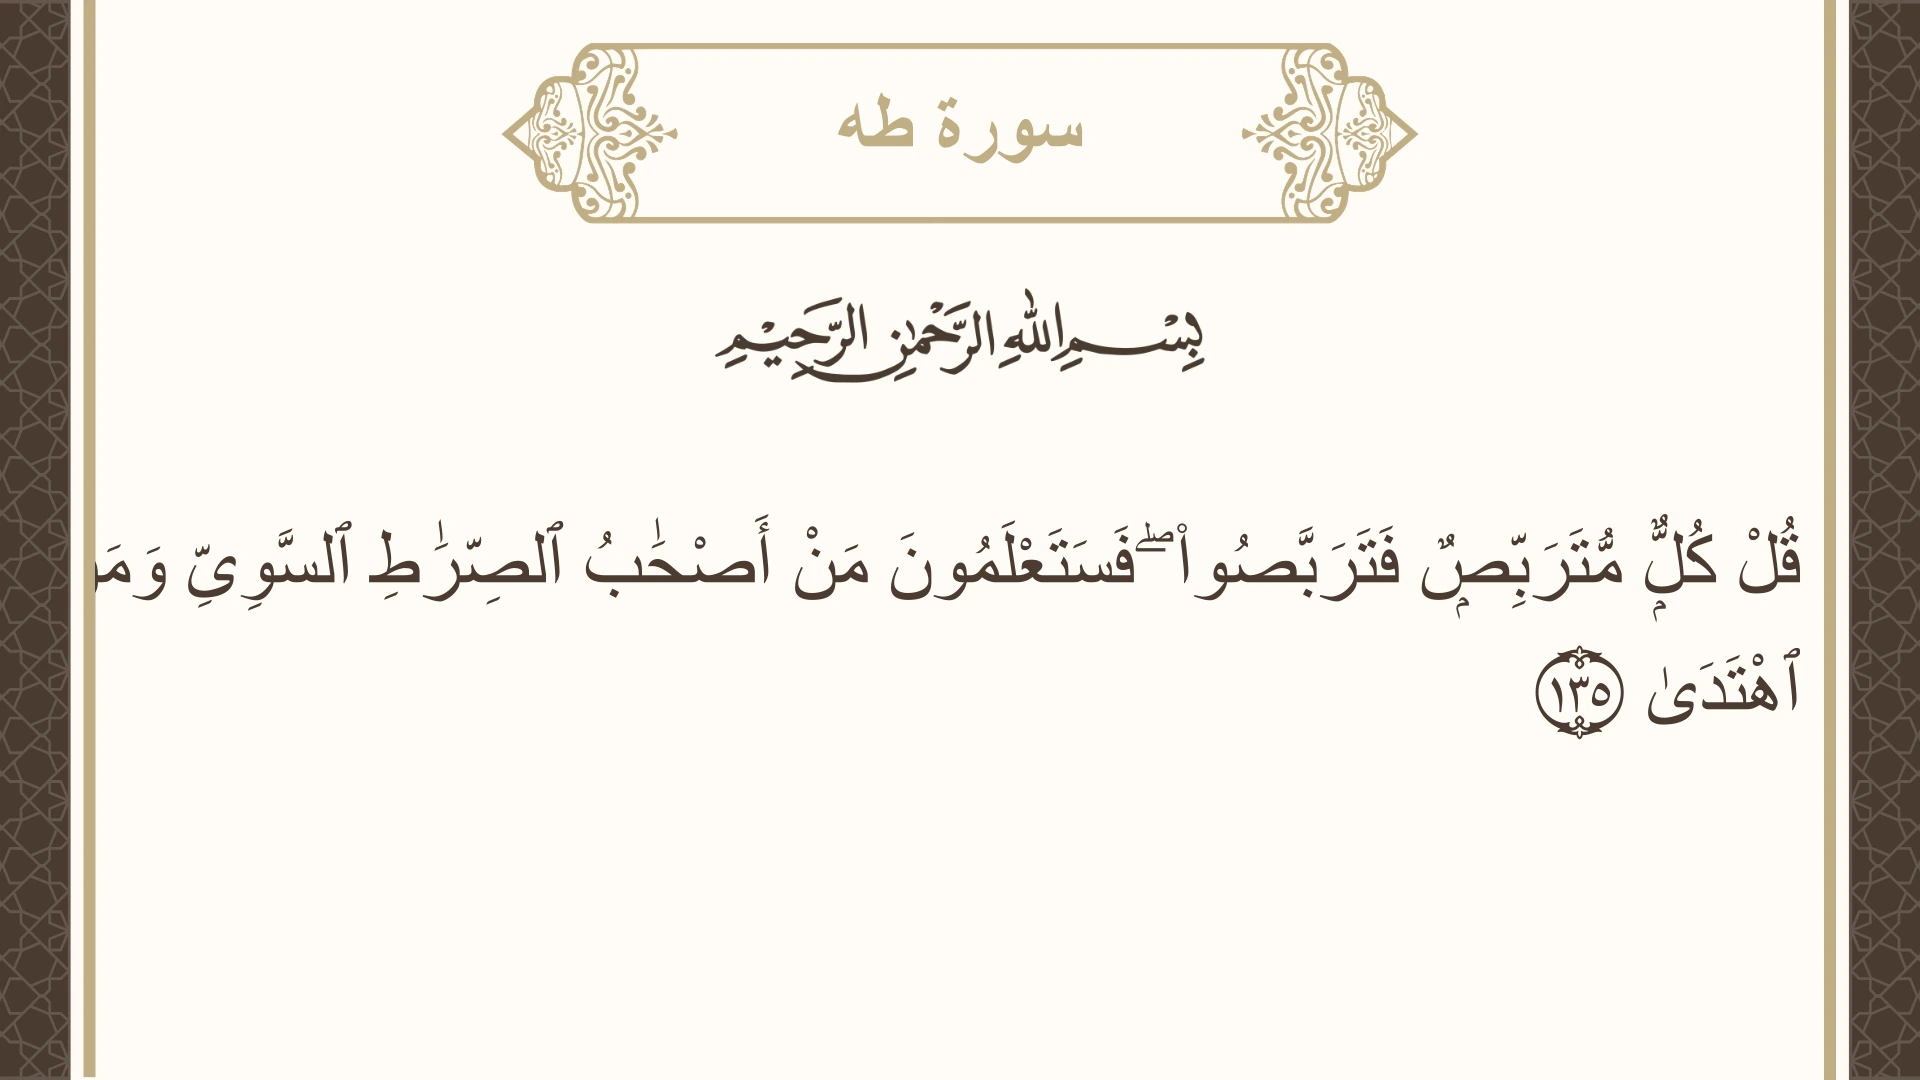 سورة طه
بِسْمِ اللهِ الرَّحْمٰنِ الرَّحِيْمِ
قُلْ كُلٌّۭ مُّتَرَبِّصٌۭ فَتَرَبَّصُوا۟ ۖ فَسَتَعْلَمُونَ مَنْ أَصْحَـٰبُ ٱلصِّرَٰطِ ٱلسَّوِىِّ وَمَ
ٱهْتَدَىٰ ١٣٥